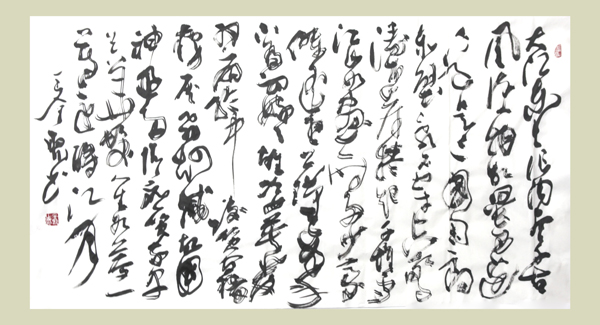 大江东去浪淘尽千古
风流人物故垒西边
人道是三国周郎
赤壁乱石穿空惊
涛拍岸卷起千堆雪
江山如画一时多少豪
杰遥想公瑾当年
小乔初嫁了雄姿英发
羽扇纶巾谈笑间樯
橹灰飞烟灭故国
神游多情应笑我早生
华发人生如梦一
尊还酹江月